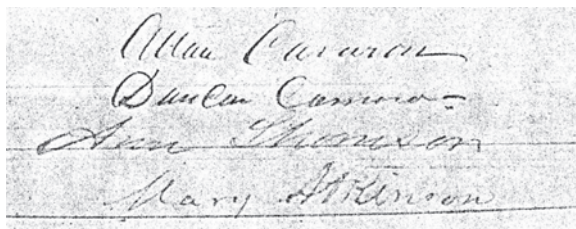 Allan Cameron
Duncan Cameron
Ann Thomson
Mary Atkinson